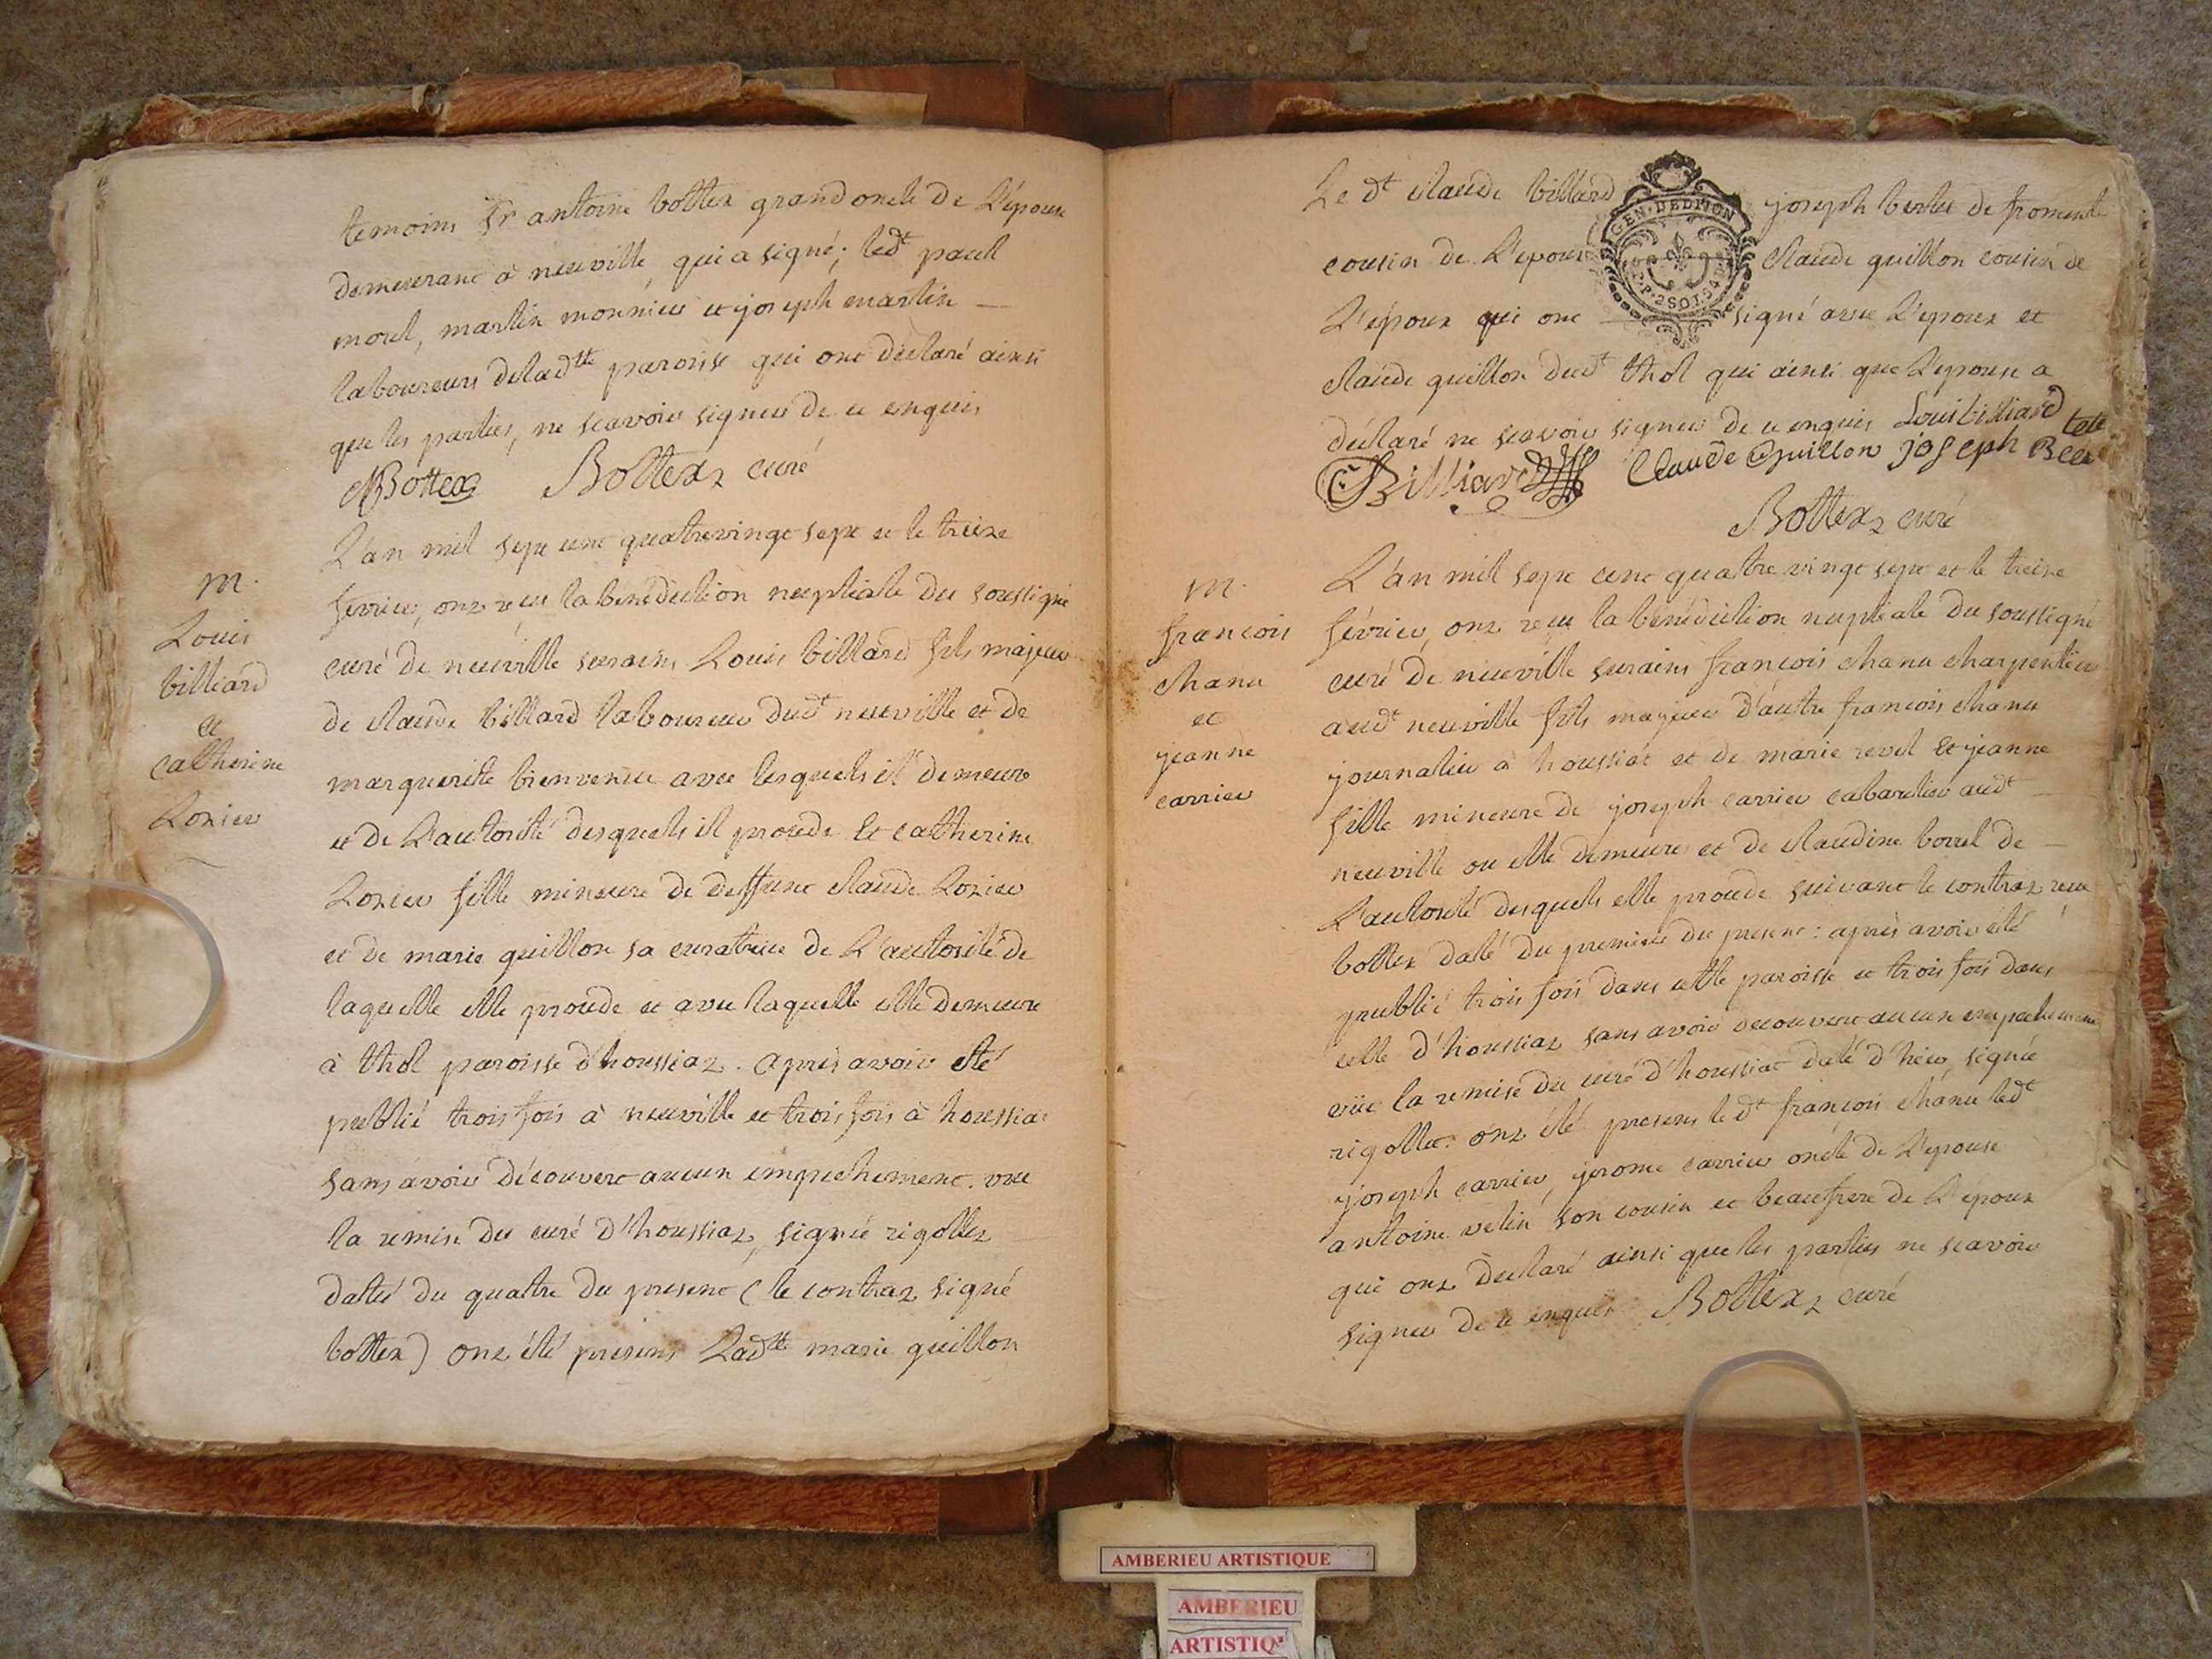 temoins Sr antoine bottex grand oncle de L'épouse
demeurant à neuville, qui a signé; ledt paul
morel, martin monnier et joseph martin
laboureurs deladtte paroisse qui ont déclaré ainsi
que les parties, ne scavoir signer de ce enquis
Bottex Bottex curé
L'an mil sept cent quatrevingt sept et le treize
fevrier, ont reçu la bénédiction nuptiale du soussigné
curé de neuville surains Louis billiard fils majeur
de claude billiard laboureur dudt neuville et de
marguerite bienvenue avec lesquels il demeure
et de L'autorité desquels il procede Et catherine
Lozier fille mineure de deffunt claude Lozier
et de marie guillon sa curatrice de L'autorité de
laquelle elle procede et avec laquelle elle demeure
à thol paroisse d'houssiaz. après avoir été
publié trois fois à neuville et trois fois à houssia
sans avoir découvert aucun empechement. vue
la remise du curé d'houssiaz, signée rigollet
datté du quattre du present (le contraz signé
bottex) onz été presens Ladtte marie guillon
m.
Louis
billiard
et
catherine
Lozier
Le dt claude billiard joseph berlie de fromente
cousin de L'epoux claude guillon cousin de
L'époux qui ont signé avec L'epoux et
claude guillon dudt thol qui ainsi que L'epouse a
déclaré ne scavoir signer de ce enquis Louis billiard
C Billiard Claude Guillon joseph
Bottex curé
GEN. DEDIION
2 SOLS
L'an mil sept cent quatre vingt sept et le treize
février, onz reçu la bénédiction nuptiale du soussigné
curé de neuville surains françois chanu charpentier
audt neuville fils majeur d'autre françois chanu
journalier à houssiat et de marie revel Et jeanne
fille mineure de joseph carrier cabaretier audt
neuville ou elle demeure et de claudine borrel de
L'autorité desquels elle procede suivant le contraz reçu
bottex datté du premier du present: après avoir été
publié trois fois dans cette paroisse et trois fois dans
celle d'houssiaz sans avoir decouvert aucun empechement
vüe la remise du curé d'houssiat daté d'hier, signée
rigollet. onz été presens le dt françois chanu ledt
joseph carrier, jerome carrier oncle de L'epouse
antoine velin son cousin et beaufrere de L'époux
qui onz déclaré ainsi que les parties ne scavoir
signer de ce enquis Bottex curé
m.
françois
chanu
et
jeanne
carrier
AMBERIEU ARTISTIQUE
AMBERIEU
ARTISTIQ